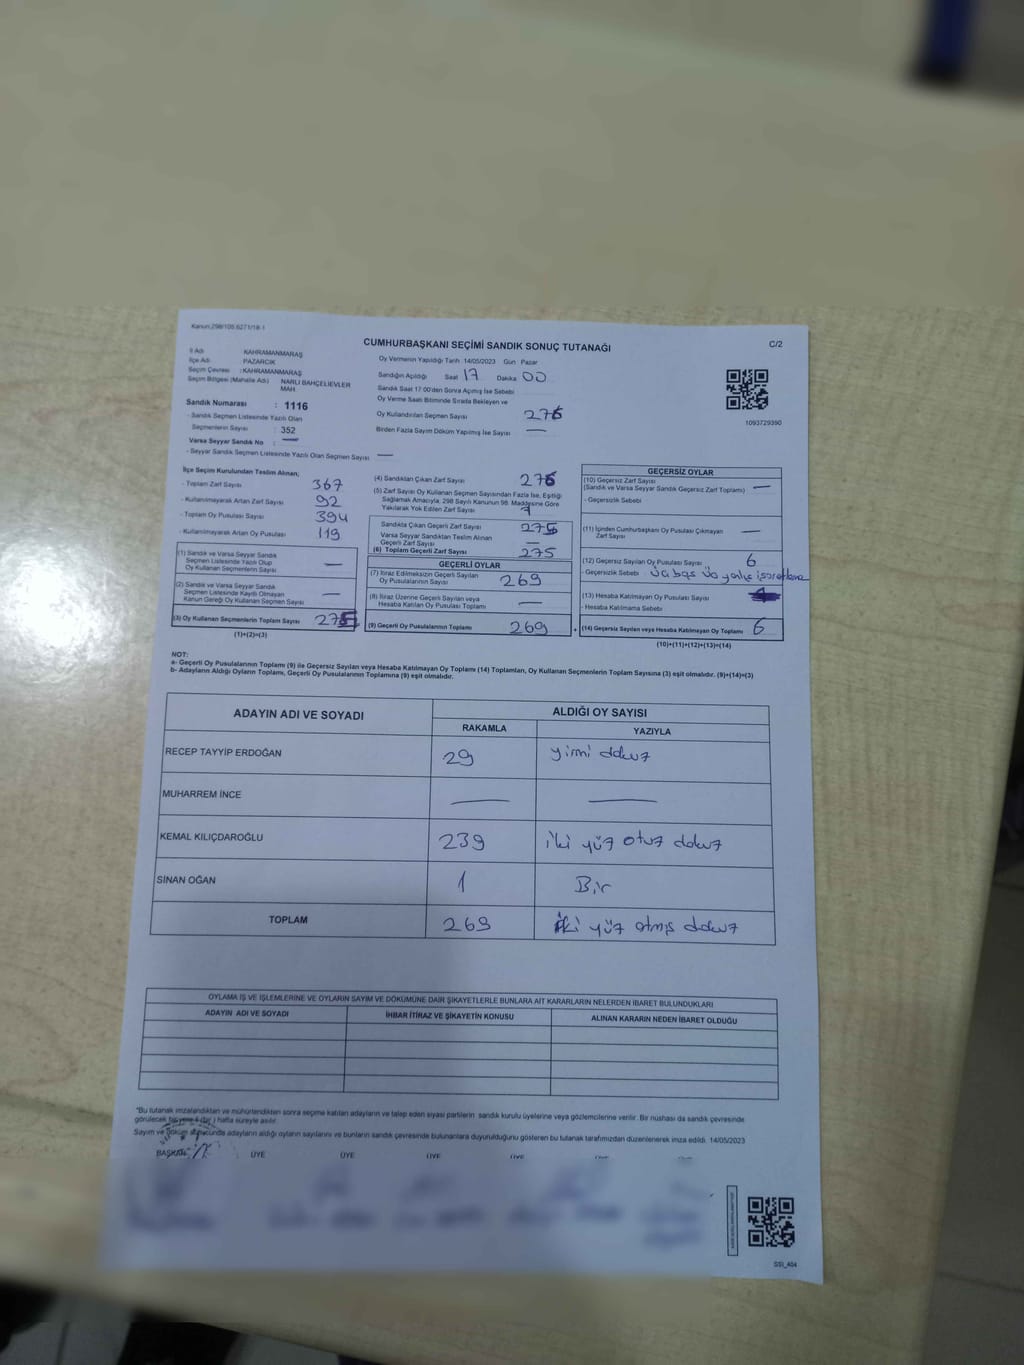 Kanun:298/105.6271/18-1
CUMHURBAŞKANI SEÇİMİ SANDIK SONUÇ TUTANAĞI
C/2
İl Adı KAHRAMANMARAŞ
İlçe Adı PAZARCIK
Seçim Çevresi : KAHRAMANMARAŞ
Seçim Bölgesi (Mahalle Adı) NARLI BAHÇELİEVLER MAH.
Sandık Numarası : 1116
- Sandık Seçmen Listesinde Yazılı Olan
Seçmenlerin Sayısı : 352
Varsa Seyyar Sandık No : —
- Seyyar Sandık Seçmen Listesinde Yazılı Olan Seçmen Sayısı —
Oy Vermenin Yapıldığı Tarih 14/05/2023 Gün Pazar
Sandığın Açıldığı Saat 17 Dakika 00
Sandık Saat 17.00'den Sonra Açılmış İse Sebebi
Oy Verme Saati Bitiminde Sırada Bekleyen ve
Oy Kullandırılan Seçmen Sayısı
Birden Fazla Sayım Döküm Yapılmış İse Sayısı —
1093729390
İlçe Seçim Kurulundan Teslim Alınan;
- Toplam Zarf Sayısı 367
- Kullanılmayarak Artan Zarf Sayısı 92
- Toplam Oy Pusulası Sayısı 394
- Kullanılmayarak Artan Oy Pusulası 119
(1) Sandık ve Varsa Seyyar Sandık
Seçmen Listesinde Yazılı Olup
Oy Kullanan Seçmenlerin Sayısı —
(2) Sandık ve Varsa Seyyar Sandık
Seçmen Listesinde Kayıtlı Olmayan
Kanun Gereği Oy Kullanan Seçmen Sayısı —
(3) Oy Kullanan Seçmenlerin Toplam Sayısı 275
(1)+(2)=(3)
(4) Sandıktan Çıkan Zarf Sayısı
(5) Zarf Sayısı Oy Kullanan Seçmen Sayısından Fazla İse, Eşitliği
Sağlamak Amacıyla, 298 Sayılı Kanunun 98. Maddesine Göre
Yakılarak Yok Edilen Zarf Sayısı
Sandıkta Çıkan Geçerli Zarf Sayısı 275
Varsa Seyyar Sandıktan Teslim Alınan
Geçerli Zarf Sayısı —
(6) Toplam Geçerli Zarf Sayısı 275
GEÇERLİ OYLAR
(7) İtiraz Edilmeksizin Geçerli Sayılan
Oy Pusulalarının Sayısı 269
(8) İtiraz Üzerine Geçerli Sayılan veya
Hesaba Katılan Oy Pusulası Toplamı —
(9) Geçerli Oy Pusulalarının Toplamı 269
GEÇERSİZ OYLAR
(10) Geçersiz Zarf Sayısı
(Sandık ve Varsa Seyyar Sandık Geçersiz Zarf Toplamı) —
- Geçersizlik Sebebi
(11) İçinden Cumhurbaşkanı Oy Pusulası Çıkmayan
Zarf Sayısı —
(12) Geçersiz Sayılan Oy Pusulası Sayısı 6
- Geçersizlik Sebebi
(13) Hesaba Katılmayan Oy Pusulası Sayısı
- Hesaba Katılmama Sebebi
(14) Geçersiz Sayılan veya Hesaba Katılmayan Oy Toplamı 6
(10)+(11)+(12)+(13)=(14)
NOT:
a- Geçerli Oy Pusulalarının Toplamı (9) ile Geçersiz Sayılan veya Hesaba Katılmayan Oy Toplamı (14) Toplamları, Oy Kullanan Seçmenlerin Toplam Sayısına (3) eşit olmalıdır. (9)+(14)=(3)
b- Adayların Aldığı Oyların Toplamı, Geçerli Oy Pusulalarının Toplamına (9) eşit olmalıdır.
ADAYIN ADI VE SOYADI ALDIĞI OY SAYISI
RAKAMLA YAZIYLA
RECEP TAYYİP ERDOĞAN 29 yirmi dokuz
MUHARREM İNCE — —
KEMAL KILIÇDAROĞLU 239 iki yüz otuz dokuz
SİNAN OĞAN 1 Bir
TOPLAM 269 iki yüz atmış dokuz
OYLAMA İŞ VE İŞLEMLERİNE VE OYLARIN SAYIM VE DÖKÜMÜNE DAİR ŞİKAYETLERLE BUNLARA AİT KARARLARIN NELERDEN İBARET BULUNDUKLARI
ADAYIN ADI VE SOYADI İHBAR İTİRAZ VE ŞİKAYETİN KONUSU ALINAN KARARIN NEDEN İBARET OLDUĞU
"Bu tutanak imzalandıktan ve mühürlendikten sonra seçime katılan adayların ve talep eden siyasi partilerin sandık kurulu üyelerine veya gözlemcilerine verilir. Bir nüshası da sandık çevresinde
görülecek bir yere 1 (bir) hafta süreyle asılır.
Sayım ve Döküm sonucunda adayların aldığı oyların sayılarını ve bunların sandık çevresinde bulunanlara duyurulduğunu gösteren bu tutanak tarafımızdan düzenlenerek imza edildi. 14/05/2023
BAŞKAN ÜYE ÜYE ÜYE ÜYE
SSİ_404